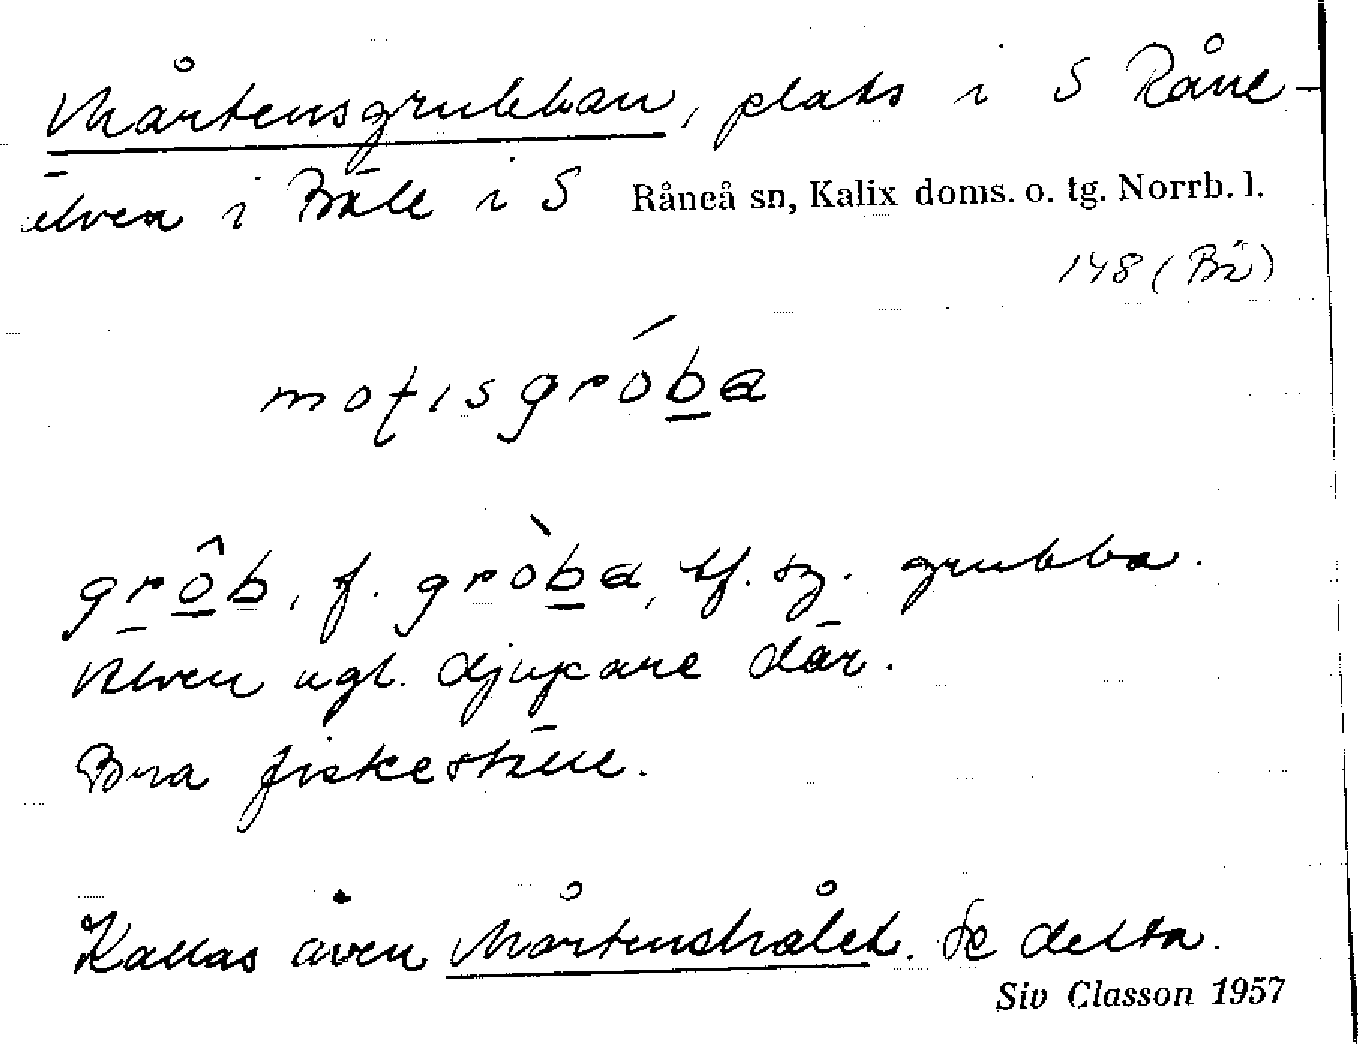 Mårtensgrubban, plats i S Råne-
älven i Bäle i S Råneå sn, Kalix doms. o. tg. Norrb. l.
148 (Bä)
gròb, f. gròba, bf. sg. grubba.
Älven ngt. djupare där.
Bra fiskeställe.
Kallas även Mårtenshålet. Se detta.
Siv Classon 1957